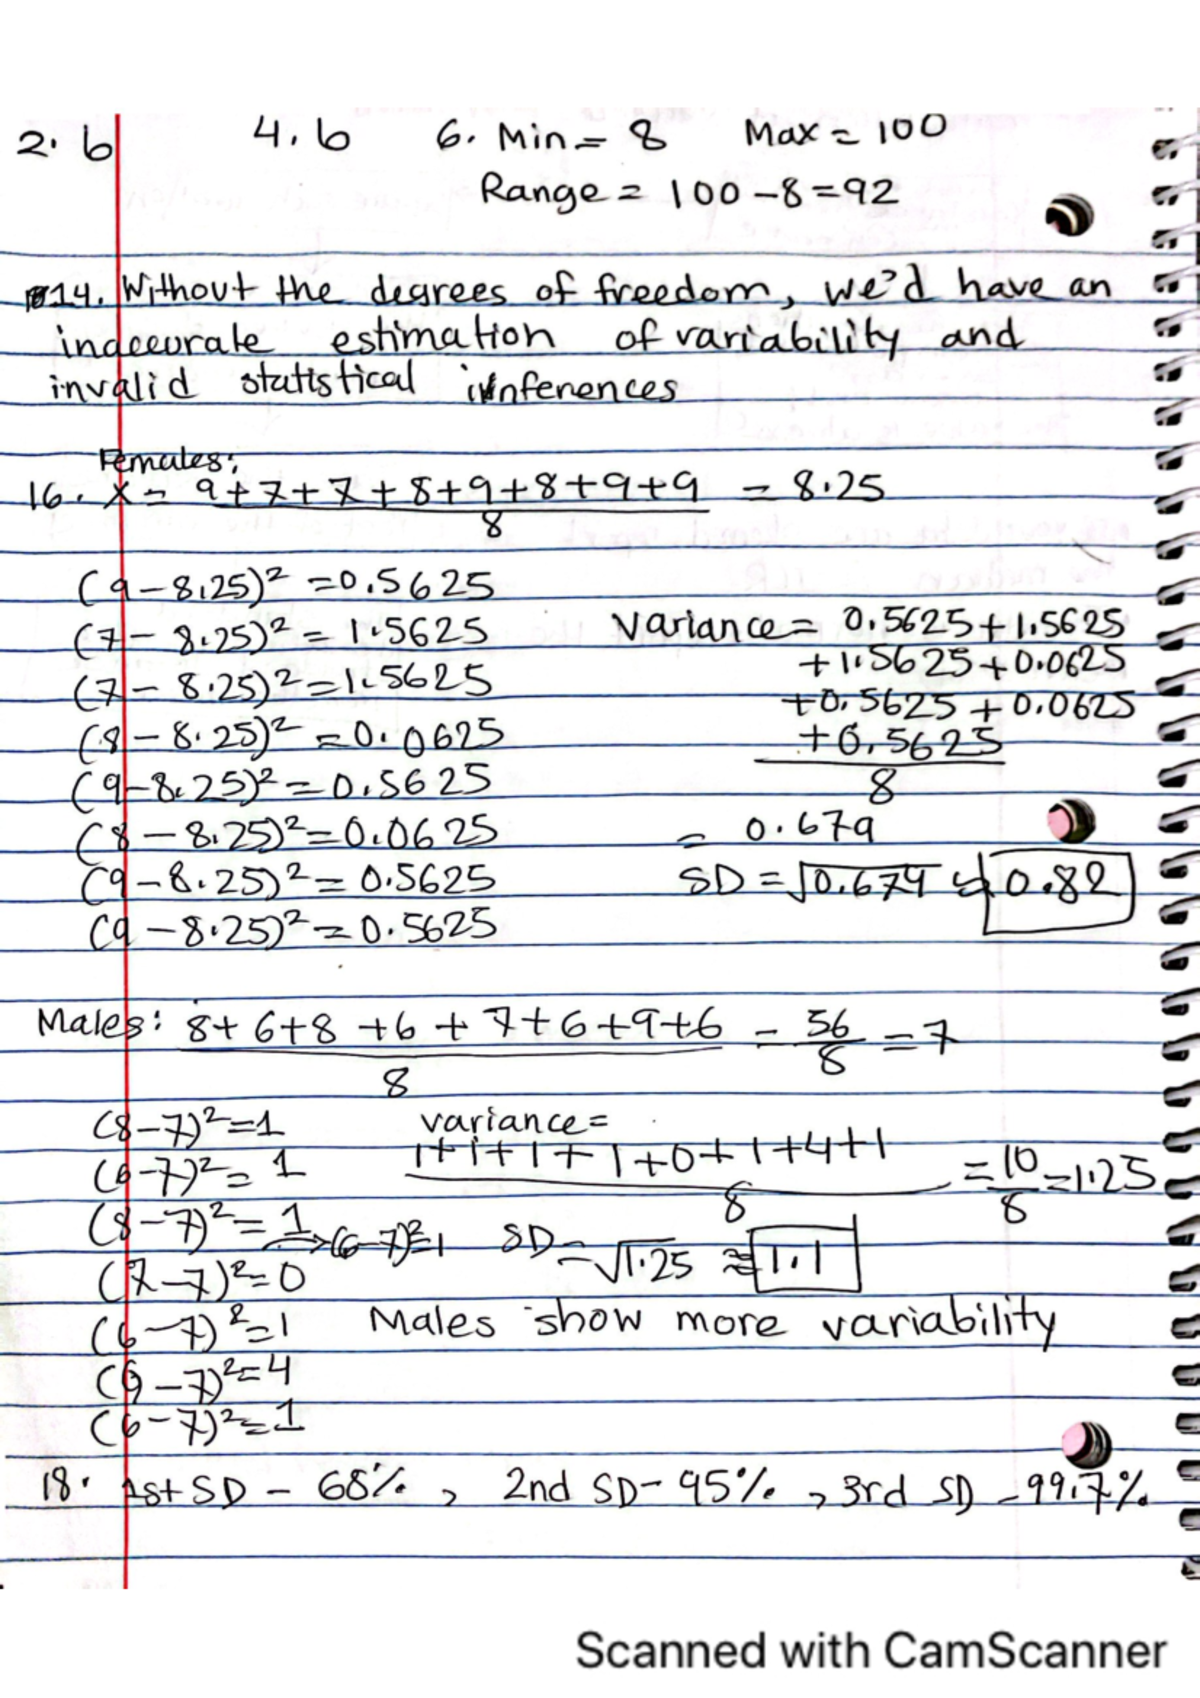 2. b 4. b 6. Min = 8 Max = 100
Range = 100 - 8 = 92
14. Without the degrees of freedom, we'd have an
inaccurate estimation of variability and
invalid statistical inferences
Females:
16. x = 9+7+7+8+9+8+9+9 = 8.25
8
(9-8.25)² = 0.5625
(7-8.25)² = 1.5625
(7-8.25)² = 1.5625
(8-8.25)² = 0.0625
(9-8.25)² = 0.5625
(8-8.25)² = 0.0625
(9-8.25)² = 0.5625
(9-8.25)² = 0.5625
Variance = 0.5625+1.5625
+1.5625+0.0625
+0.5625+0.0625
+0.5625
8
= 0.679
SD = √0.674 ≈ 0.82
Males: 8+6+8+6+7+6+9+6 = 56 = 7
8 8
(8-7)² = 1
(6-7)² = 1
(8-7)² = 1 → (6-7)² = 1
(7-7)² = 0
(6-7)² = 1
(9-7)² = 4
(6-7)² = 1
variance =
1+1+1+1+0+1+4+1 = 10 = 1.25
8 8
SD = √1.25 ≈ 1.1
Males show more variability
18. 1st SD - 68%, 2nd SD - 95%, 3rd SD - 99.7%
Scanned with CamScanner